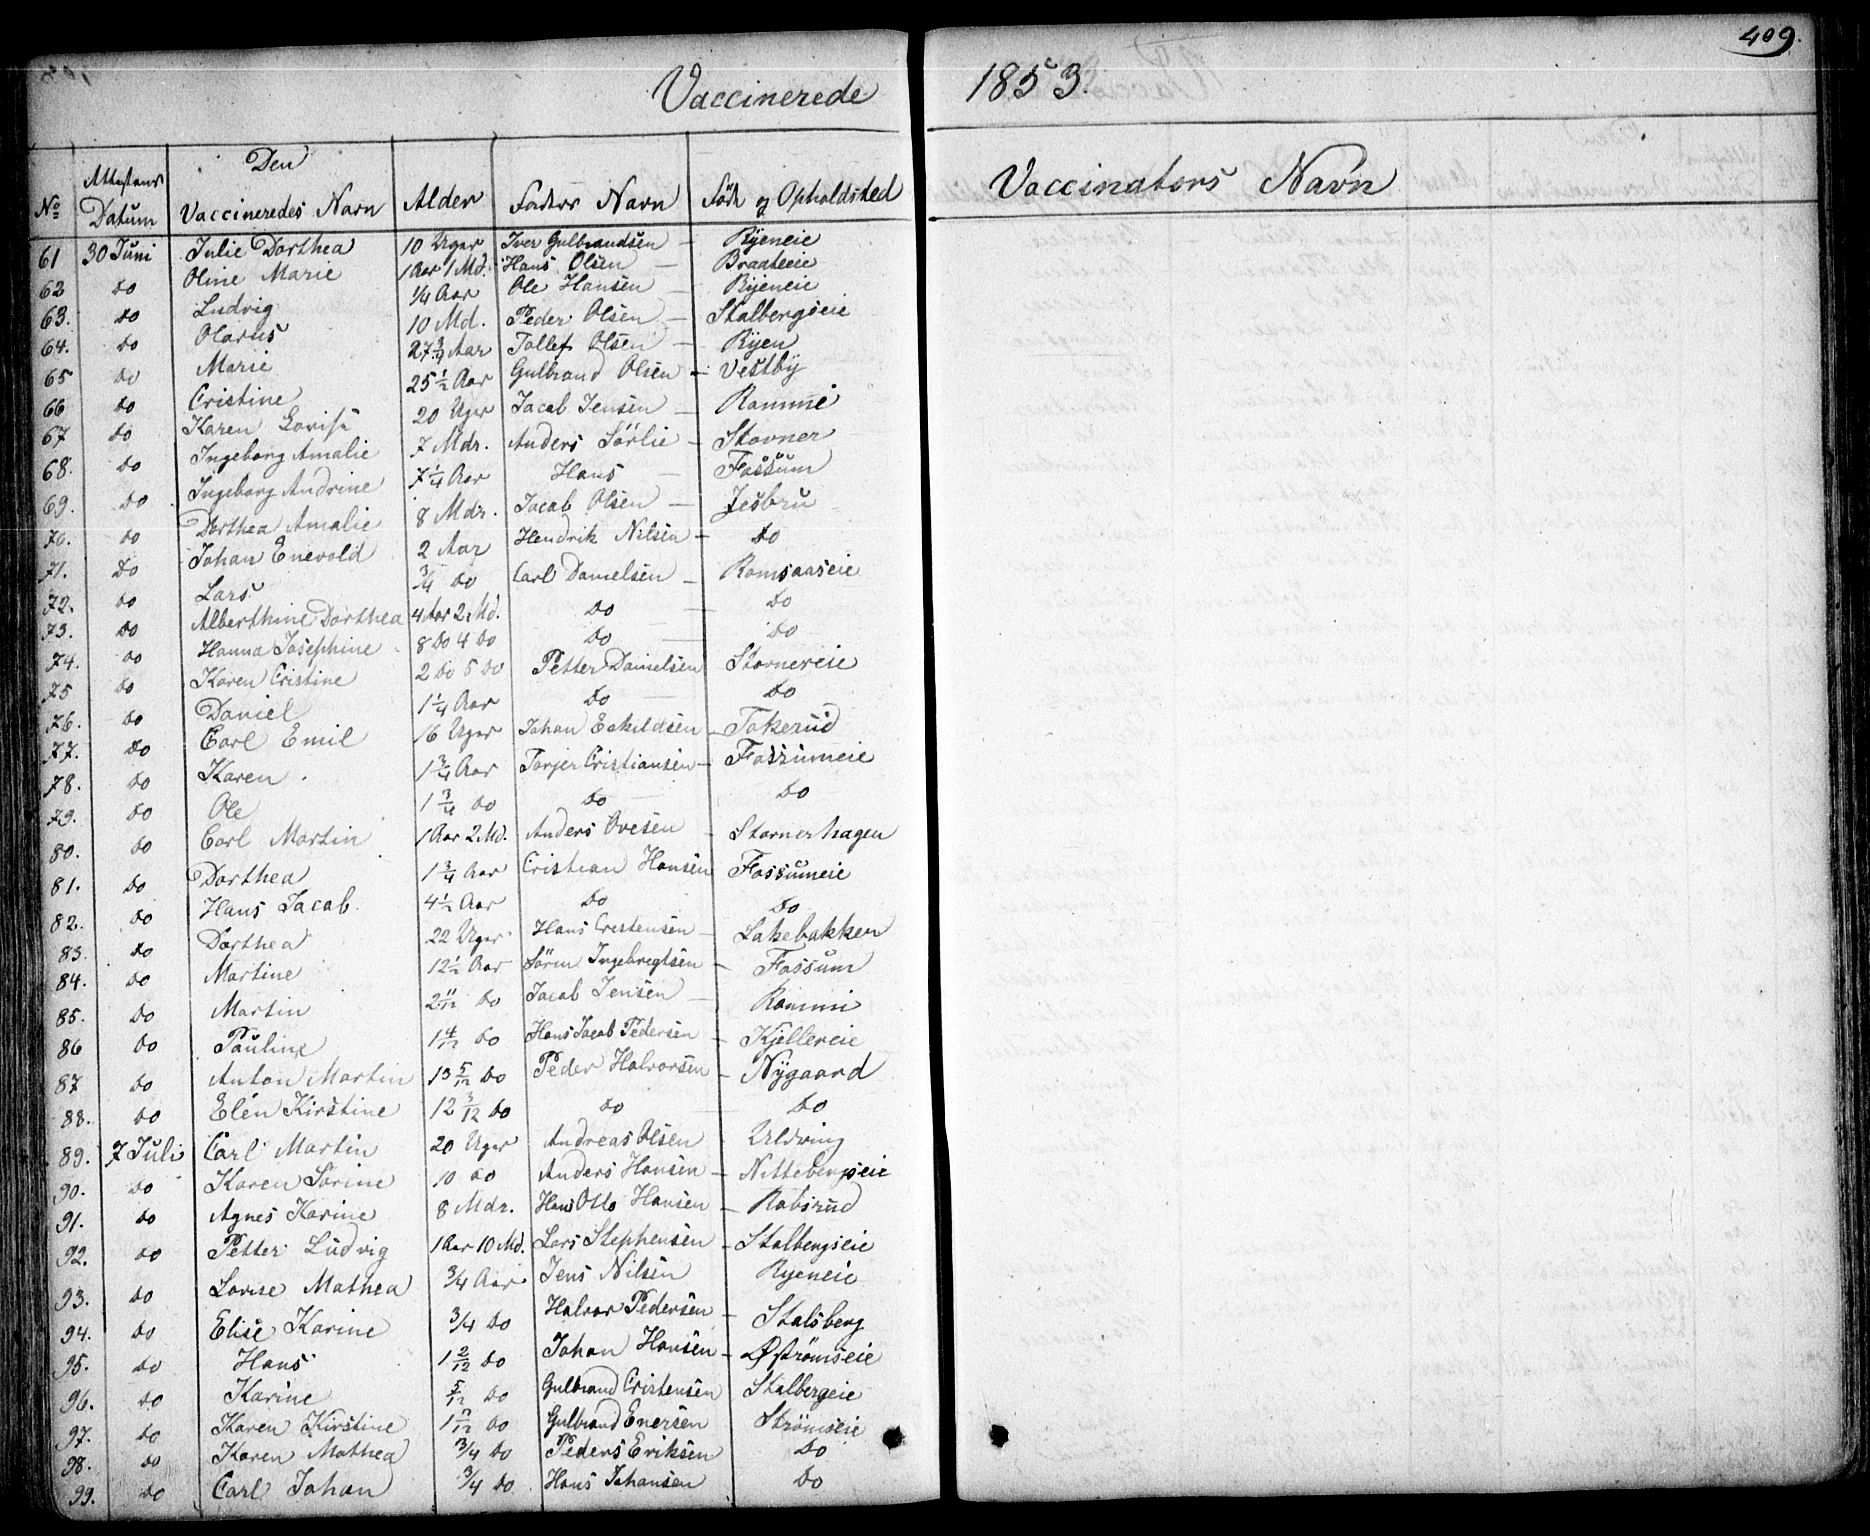 409.
Vaccinerede 1853.
No Attestens Datum Den Vaccineredes Navn Alder Faders Navn Føde og Opholdsted Vaccinators Navn
61 30 Juni Julie Dorthea 10 Uger Iver Gulbrandsen — Ryeneie
62 do Oline Marie 1 Aar 1 Md. Hans Olsen — Braateeie
63. do Ludvig 1/4 Aar Ole Hansen — Ryeneie
64. do Olavus 10 Md. Peder Olsen — Stalbergseie
65 do Marie 27 3/4 Aar Tollef Olsen — Ryen
66 do Cristine 25 1/2 Aar Gulbrand Olsen — Vestby
67 do Karen Lovise 20 Uger Jacob Jensen — Rammi
68. do Ingeborg Amalie 7 Mdr. Anders Sörlie — Stovner
69. do Ingeborg Andrine 7 1/4 Aar Hans — Fossum
70. do Dorthea Amalie 8 Mdr. Jacob Olsen — Jesbru
71. do Johan Enevold 2 Aar Hendrik Nilsen — do
72. do Lars 3/4 do Carl Danielsen — Romsaaseie
73. do Alberthine Dorthea 4 Aar 2 Md. do — do
74. do Hanna Josephine 8 do 4 do do — do
75 do Karen Cristine 2 do 5 do Petter Danielsen Stovnereie
76. do Daniel 1 1/4 Aar do — do
77. do Carl Emil 16 Uger Johan Eskildsen — Tokerud
78. do Karen 1 3/4 Aar Torjer Cristiansen — Fossumeie
79. do Ole 1 3/4 do do — do
80. do Carl Martin 1 Aar 2 Md. Anders Ovesen — Stovnerhagen
81. do Dorthea 1 3/4 Aar Cristian Hansen Fossumeie
82. do Hans Jacob 4 1/2 Aar do do
83. do Dorthea 22 Uger Hans Crestensen — Lakebakken
84. do Martine 12 1/2 Aar Sören Ingebregtsen — Fossum
85. do Martin 2 11/12 do Jacob Jensen — Rammi
86 do Pauline 1 4/12 do Hans Jacob Pedersen — Kjellereie
87 do Anton Martin 13 5/12 do Peder Halvorsen — Nygaard
88. do Elén Kirstine 12 3/12 do do — do
89. 7 Juli Carl Martin 20 Uger Andreas Olsen — Uldving
90. do Karen Sörine 10 do Anders Hansen — Nittebergseie
91. do Agnes Karine 8 Mdr. Hans Otto Hansen — Robsrud
92. do Petter Ludvig 1 Aar 10 Md. Lars Stephensen — Stalbergseie
93. do Lovise Mathea 3/4 Aar Jens Nilsen Ryeneie
94. do Elise Karine 3/4 do Halvor Pedersen — Stalsberg
95. do Hans 1 2/12 do Johan Hansen — Øströmseie
96. do Karine 5/12 do Gulbrand Cristensen Stalbergeie
97. do Karen Kirstine do Gulbrand Enersen Strömseie
98. do Karen Mathea 3/4 do Peders Eriksen do
99. do Carl Johan 3/4 do Hans Johansen do